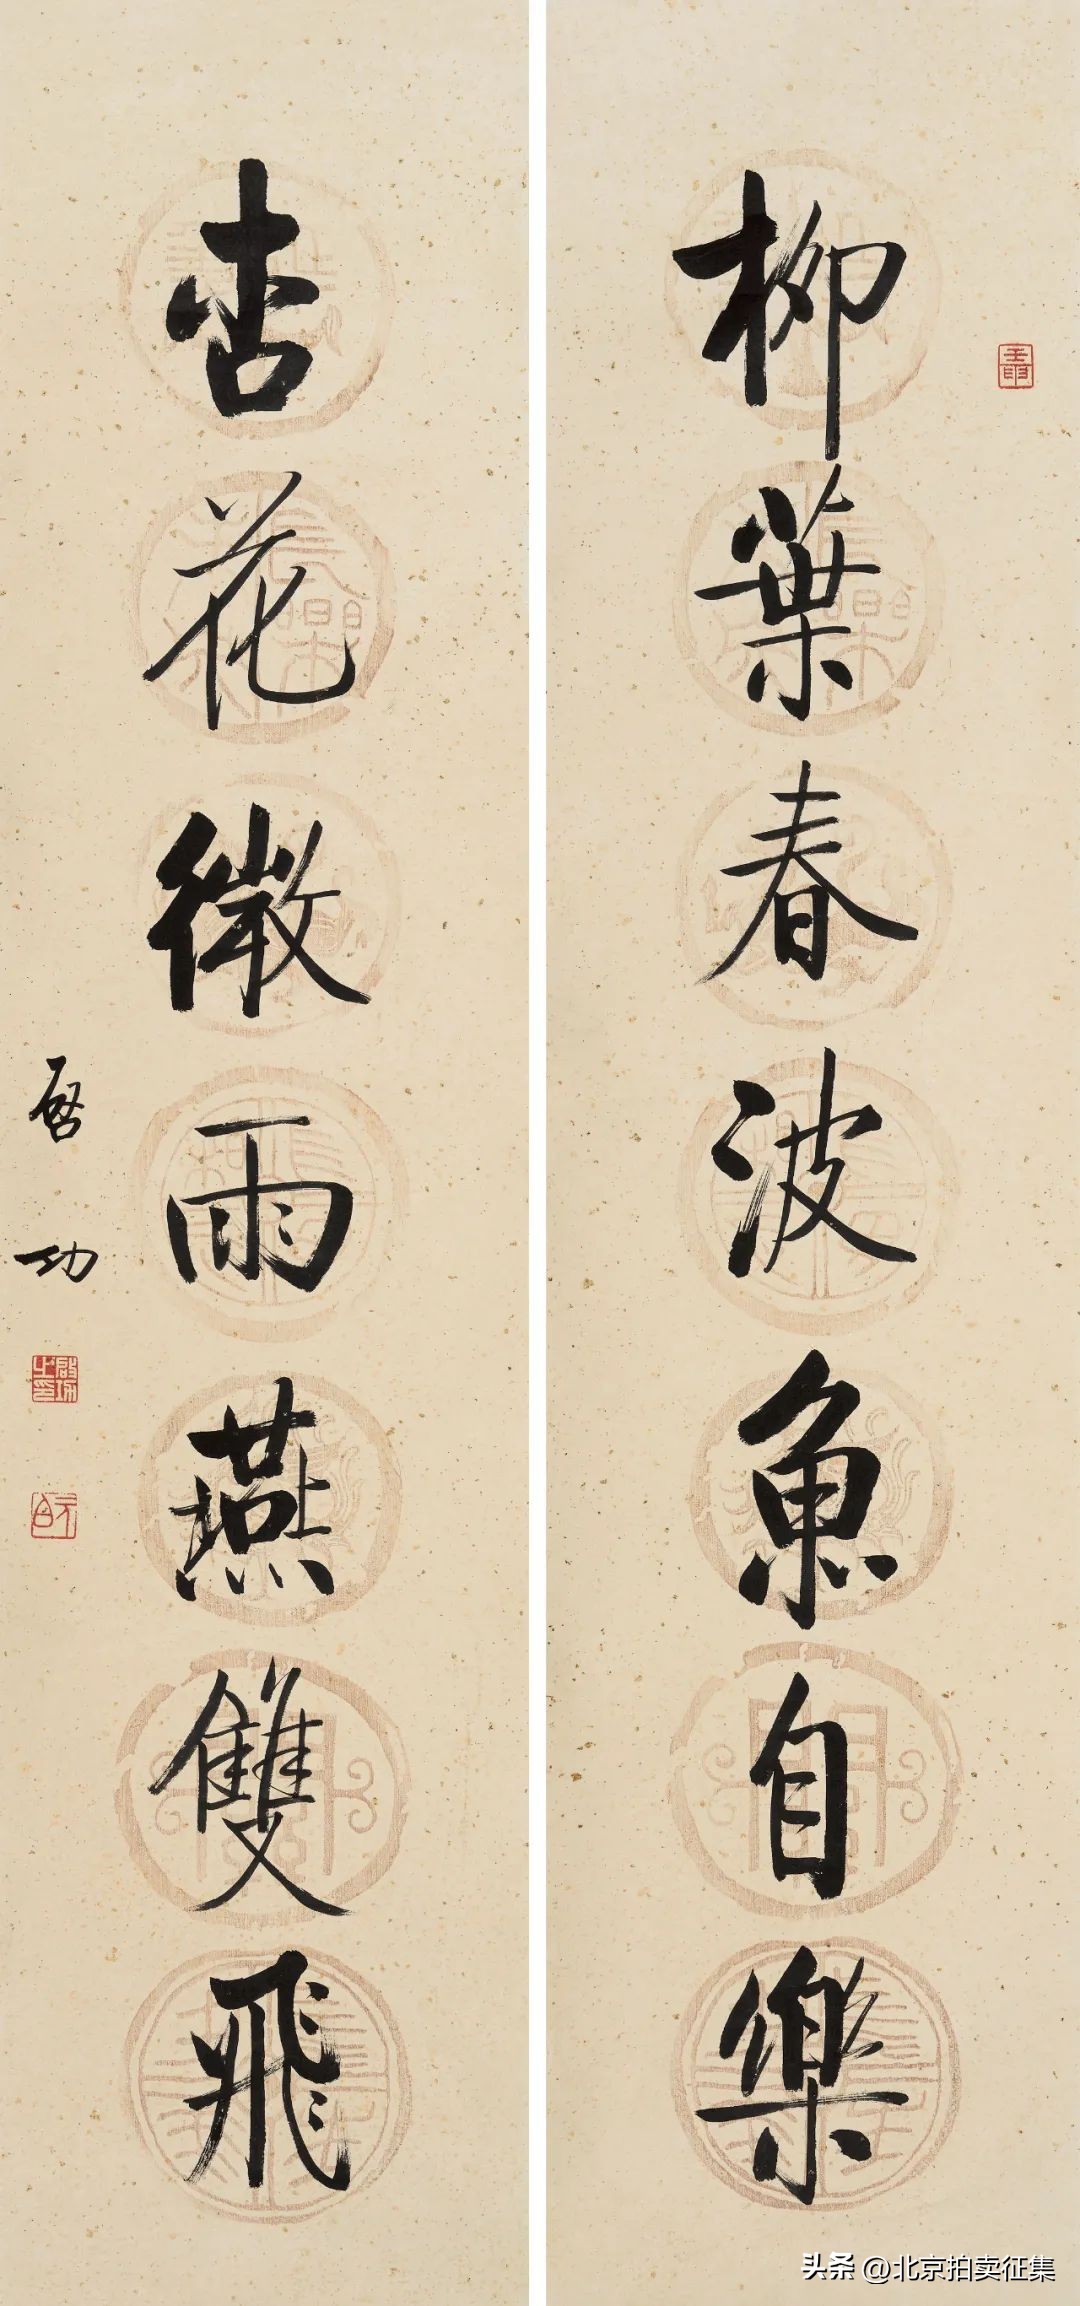 柳葉春波魚自樂
杏花微雨燕雙飛
啓功
啓功之印
头条 @北京拍卖征集